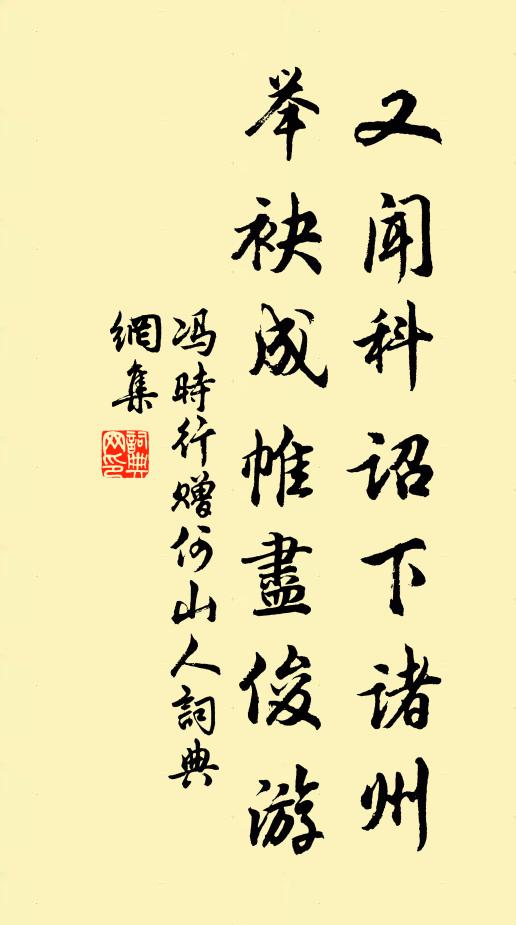 又闻科诏下诸州
举袂成帷盡俊游
冯時行赠何山人詞典
網集
詞典
网印